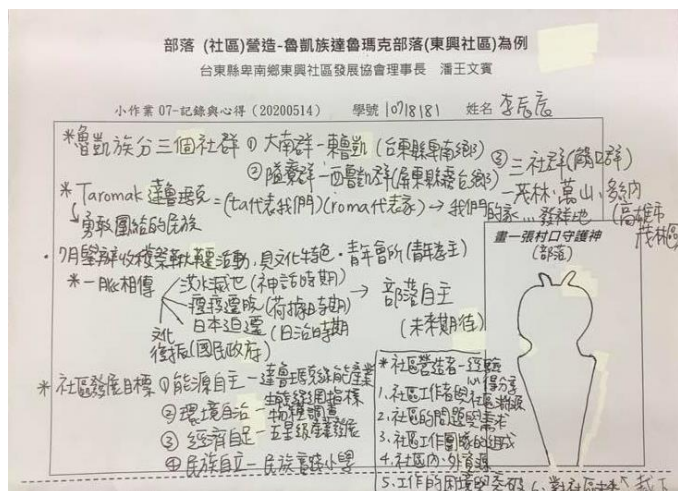 部落 (社區)營造-魯凱族達魯瑪克部落(東興社區)為例
台東縣卑南鄉東興社區發展協會理事長 潘王文賓
小作業 07-記錄與心得 (20200514) 學號 10718181 姓名 李辰宸
*魯凱族分三個社群 ① 大南群-東魯凱 (台東縣卑南鄉)
② 隘寮群-西魯凱群(屏東縣霧台鄉)
③ 三社群(濁口群)
-茂林、萬山、多納
(高雄市茂林區)
* Taromak 達魯瑪克 = (ta代表我們)(roma代表家) → 我們的家...發祥地
勇敢團結的民族
・7月舉辦收穫祭鞦韆活動,具文化特色・青年會所(青年為主)
*一脈相傳
洪水滅世 (神話時期)
瘟疫遷徙 (荷據時期)
日本迫遷 (日治時期)
文化復振(國民政府)
→ 部落自主
(未來期待)
畫一張村口守護神
(部落)
* 社區發展目標 ① 能源自主-達魯瑪克綠能產業
② 環境自治-物種調查
③ 經濟自足-五星級產業發展
④ 民族自立-民族實驗小學
*社區營造者-經驗心得分享
1.社區工作者與社區淵源
2.社區的問題與需求
3.社區工作團隊的組成
4.社區內、外資源
5.工作的困境與突破